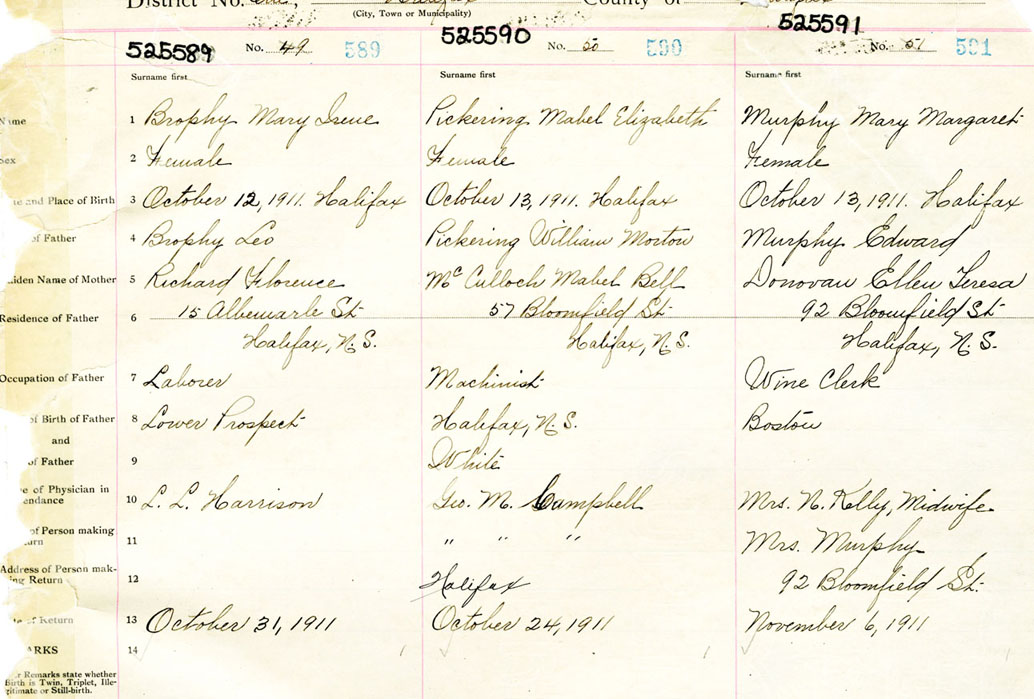 District No. Halifax County of
(City, Town or Municipality)
525589 No. 49 589 525590 No. 50 590 525591 No. 51 591
Surname first Surname first Surname first
Name 1 Brophy Mary Irene Pickering Mabel Elizabeth Murphy Mary Margaret
Sex 2 Female Female Female
and Place of Birth 3 October 12, 1911. Halifax October 13, 1911. Halifax October 13, 1911. Halifax
of Father 4 Brophy Leo Pickering William Morton Murphy Edward
iden Name of Mother 5 Richard Florence McCulloch Mabel Bell Donovan Ellen Teresa
Residence of Father 6 15 Albemarle St. 57 Bloomfield St. 92 Bloomfield St
Halifax, N.S. Halifax, N.S. Halifax, N.S.
Occupation of Father 7 Laborer Machinist Wine Clerk
of Birth of Father 8 Lower Prospect Halifax, N.S. Boston
and
of Father 9 White
e of Physician in
endance 10 L. L. Harrison Geo. M. Campbell Mrs. N. Kelly, Midwife
of Person making
urn 11 " " " Mrs. Murphy
Address of Person mak-
ing Return 12 Halifax 92 Bloomfield St.
of Return 13 October 31, 1911 October 24, 1911 November 6, 1911
ARKS 14
r Remarks state whether
Birth is Twin, Triplet, Ille-
gitimate or Still-birth.